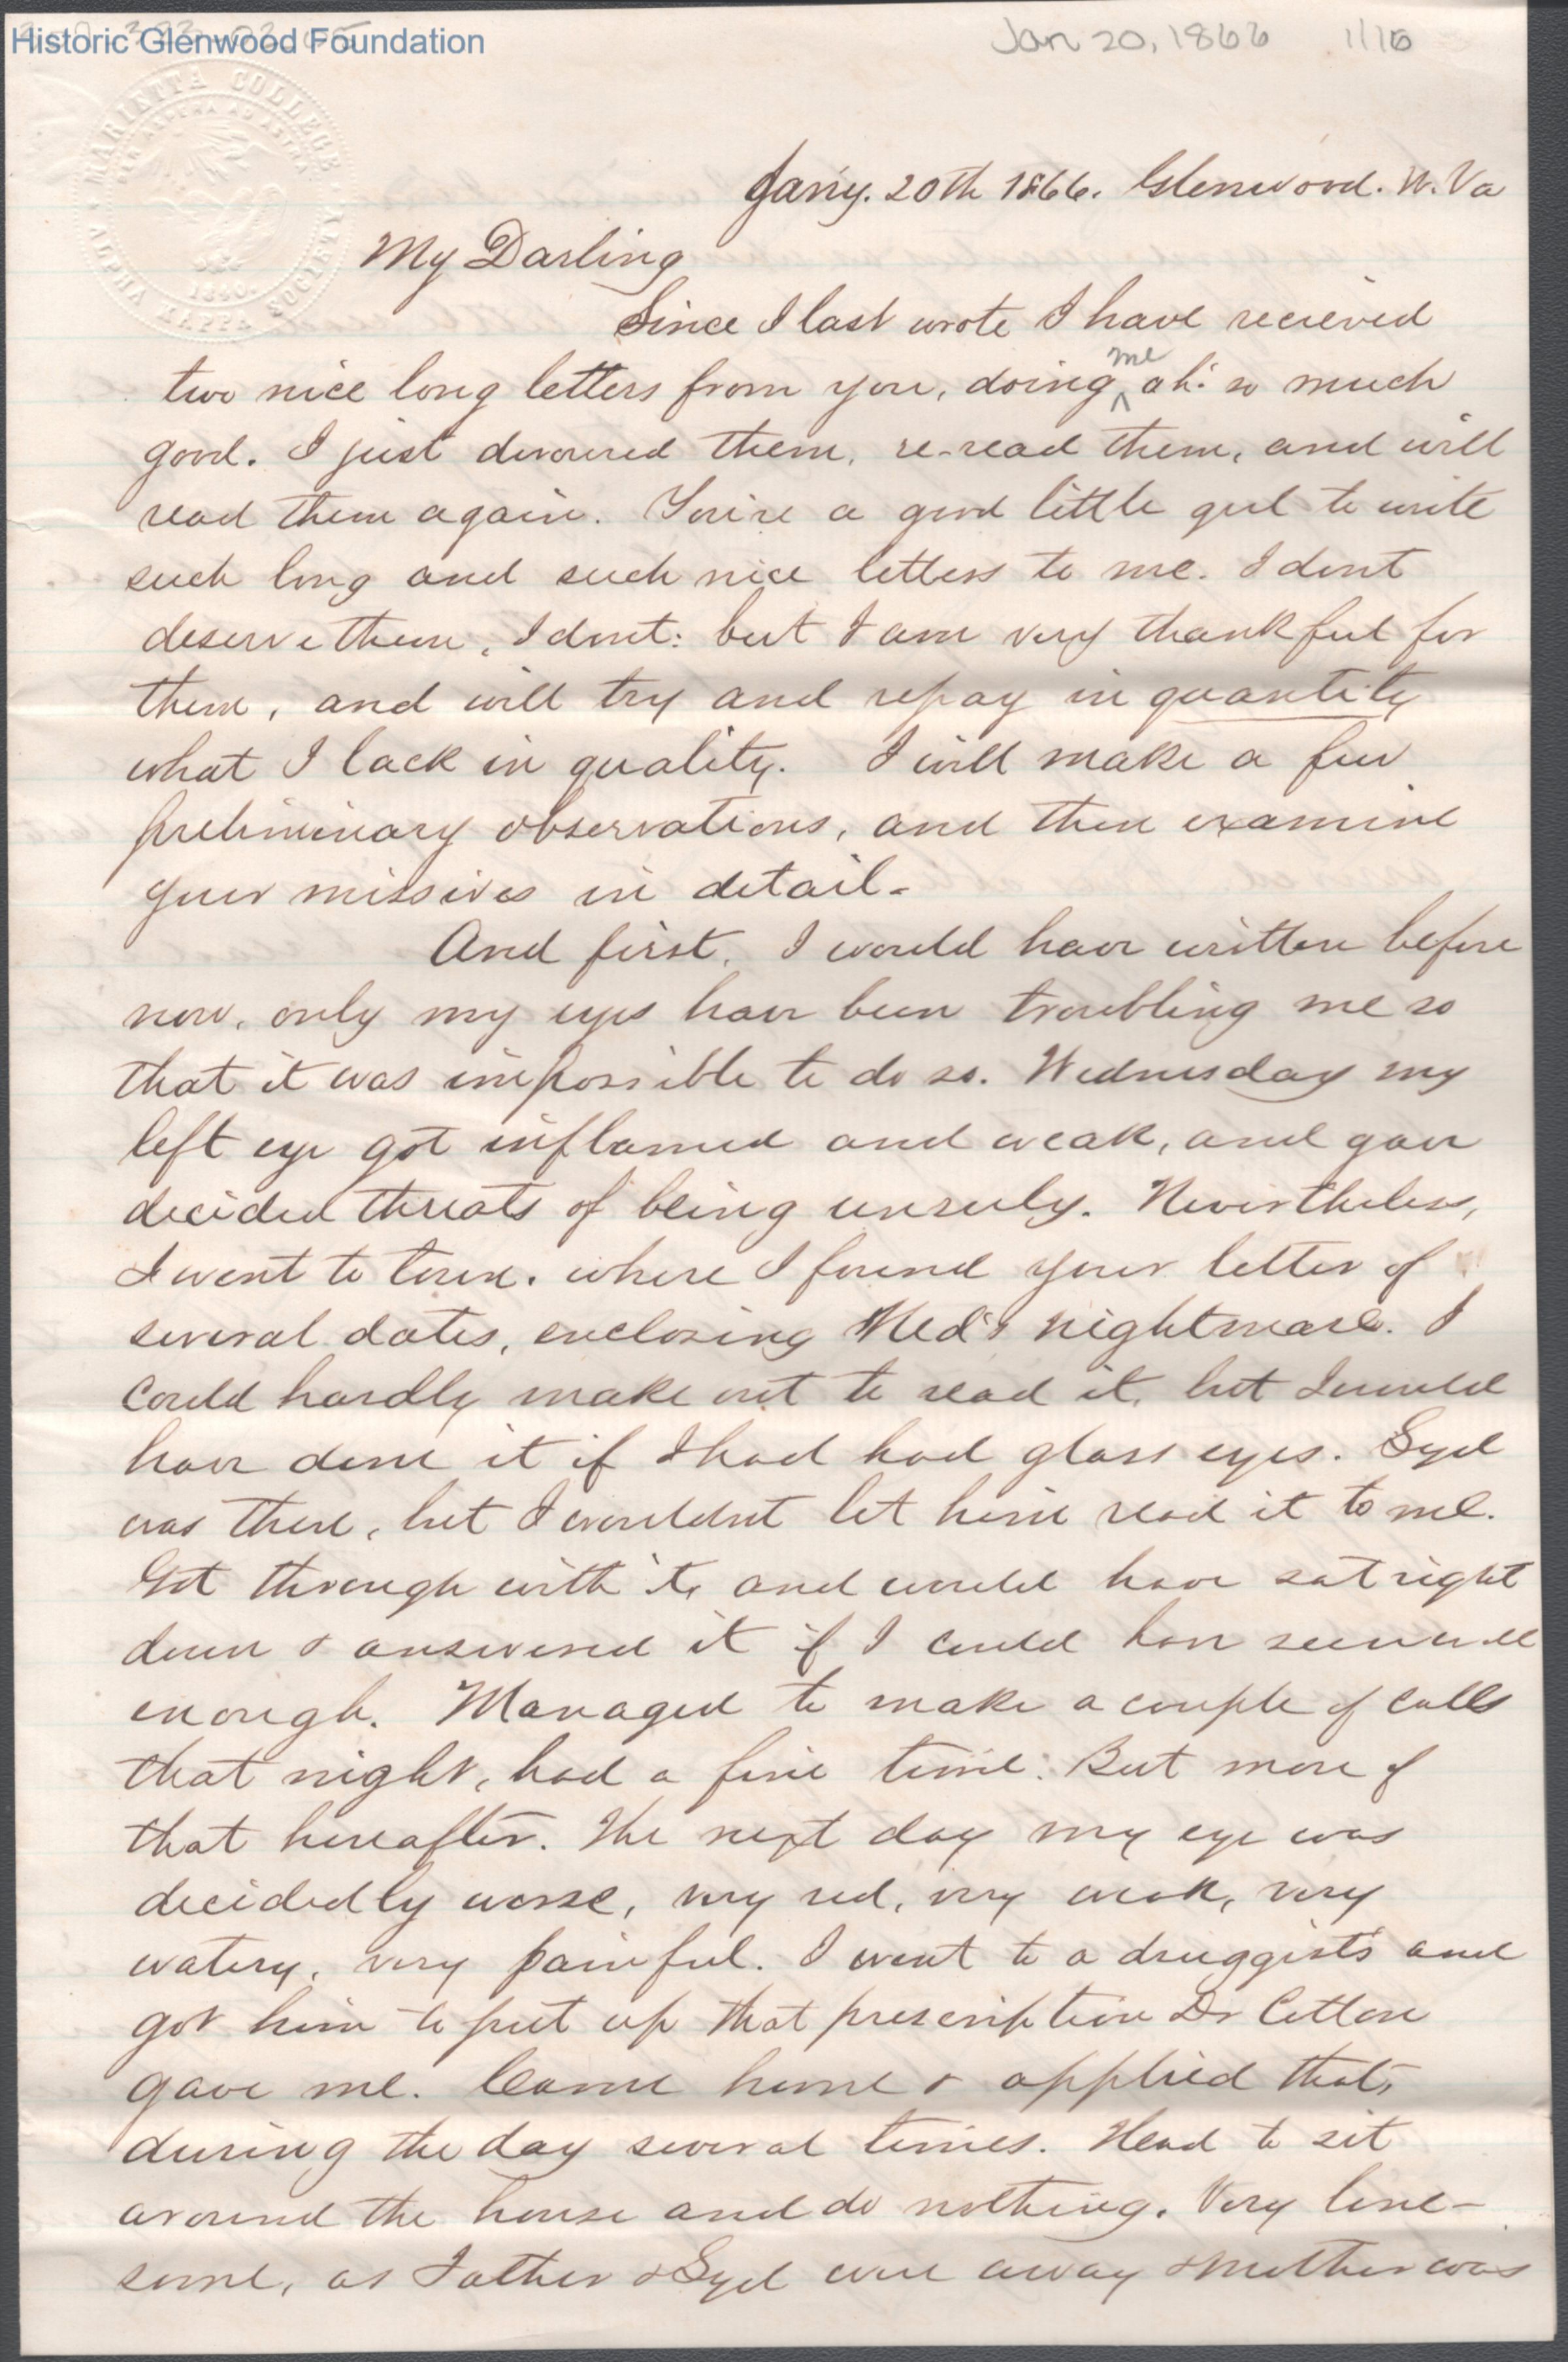 Historic Glenwood Foundation
Jan 20, 1866
MARIETTA COLLEGE
ALPHA KAPPA SOCIETY
1840.
Jan'y. 20th 1866. Glenwood. W. Va
My Darling
Since I last wrote I have recieved
me
two nice long letters from you, doing ^ oh! so much
good. I just devoured them, re-read them, and will
read them again. You're a good little girl to write
such long and such nice letters to me. I dont
deserve them, I dont: but I am very thankful for
them, and will try and repay in quantity
what I lack in quality. I will make a few
preliminary observations, and then examine
your missives in detail.
And first, I would have written before
now, only my eyes have been troubling me so
that it was impossible to do so. Wednesday my
left eye got inflamed and weak, and gave
decided threats of being unruly. Nevertheless,
I went to town. where I found your letter of
several dates, enclosing Med's nightmare. I
could hardly make out to read it, but I would
have done it if I had had glass eyes. Syd
was there, but I wouldnt let him read it to me.
Got through with it, and would have sat right
down & answered it if I could have seen well
enough. Managed to make a couple of calls
that night, had a fine time: But more of
that hereafter. The next day my eye was
decidedly worse, very red, very weak, very
watery, very painful. I went to a druggist's and
got him to put up that prescription Dr Cotton
gave me. Came home & applied that,
during the day several times. Head to sit
around the house and do nothing. Very lone-
some, as Father & Syd were away & Mother was